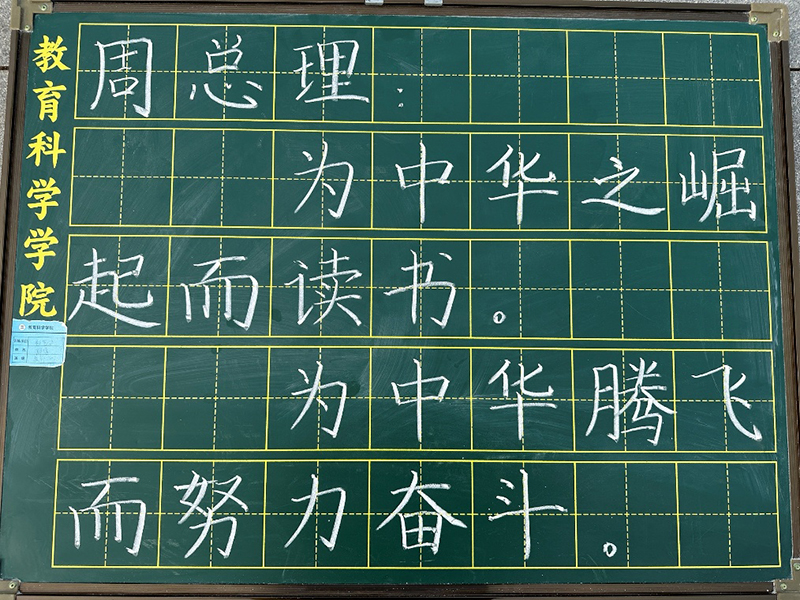 教育科学学院
周总理：
为中华之崛
起而读书。
为中华腾飞
而努力奋斗。